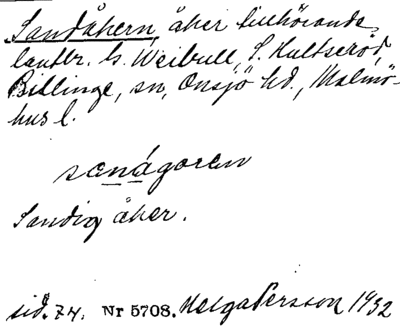 Sandåkern, åker tillhörande
lantbr. H. Weibull, S. Hultseröd,
Billinge, sn, Onsjö hd., Malmö-
hus l.
sanágoren
Sandig åker.
sid. 74. Nr 5708. Helga Persson 1932